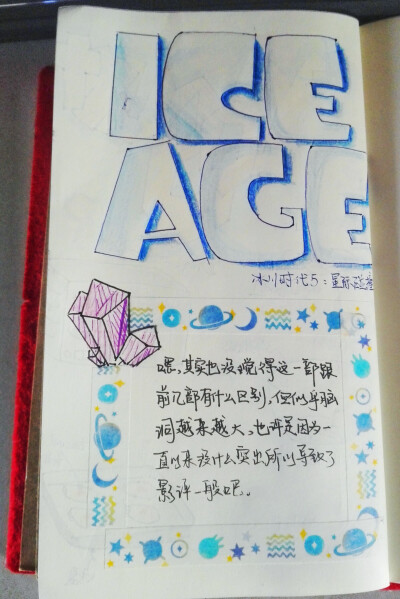 ICE
AGE
冰川时代5:星际碰撞
嗯,其实也没觉得这一部跟
前几部有什么区别,但似乎脑
洞越来越大,也许是因为一
直以来没什么突出所以导致了
影评一般吧。